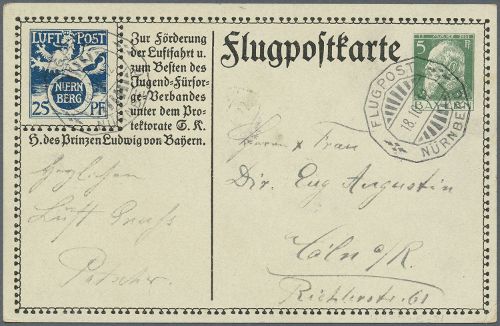 LUFT POST
NÜRN
BERG
25 PF
Zur Förderung
der Luftfahrt u.
zum Besten des
Jugend-Fürsor-
ge-Verbandes
unter dem Pro-
tektorate S. K.
H. des Prinzen Ludwig von Bayern.
Flugpostkarte
5 Pf
BAYERN
FLUGPOST
18.
NÜRNBERG
Herrn & Frau
Dir. Eug Augustin
Cöln a/R.
Richlerstr. 61
Herzlichen
Luft Gruß